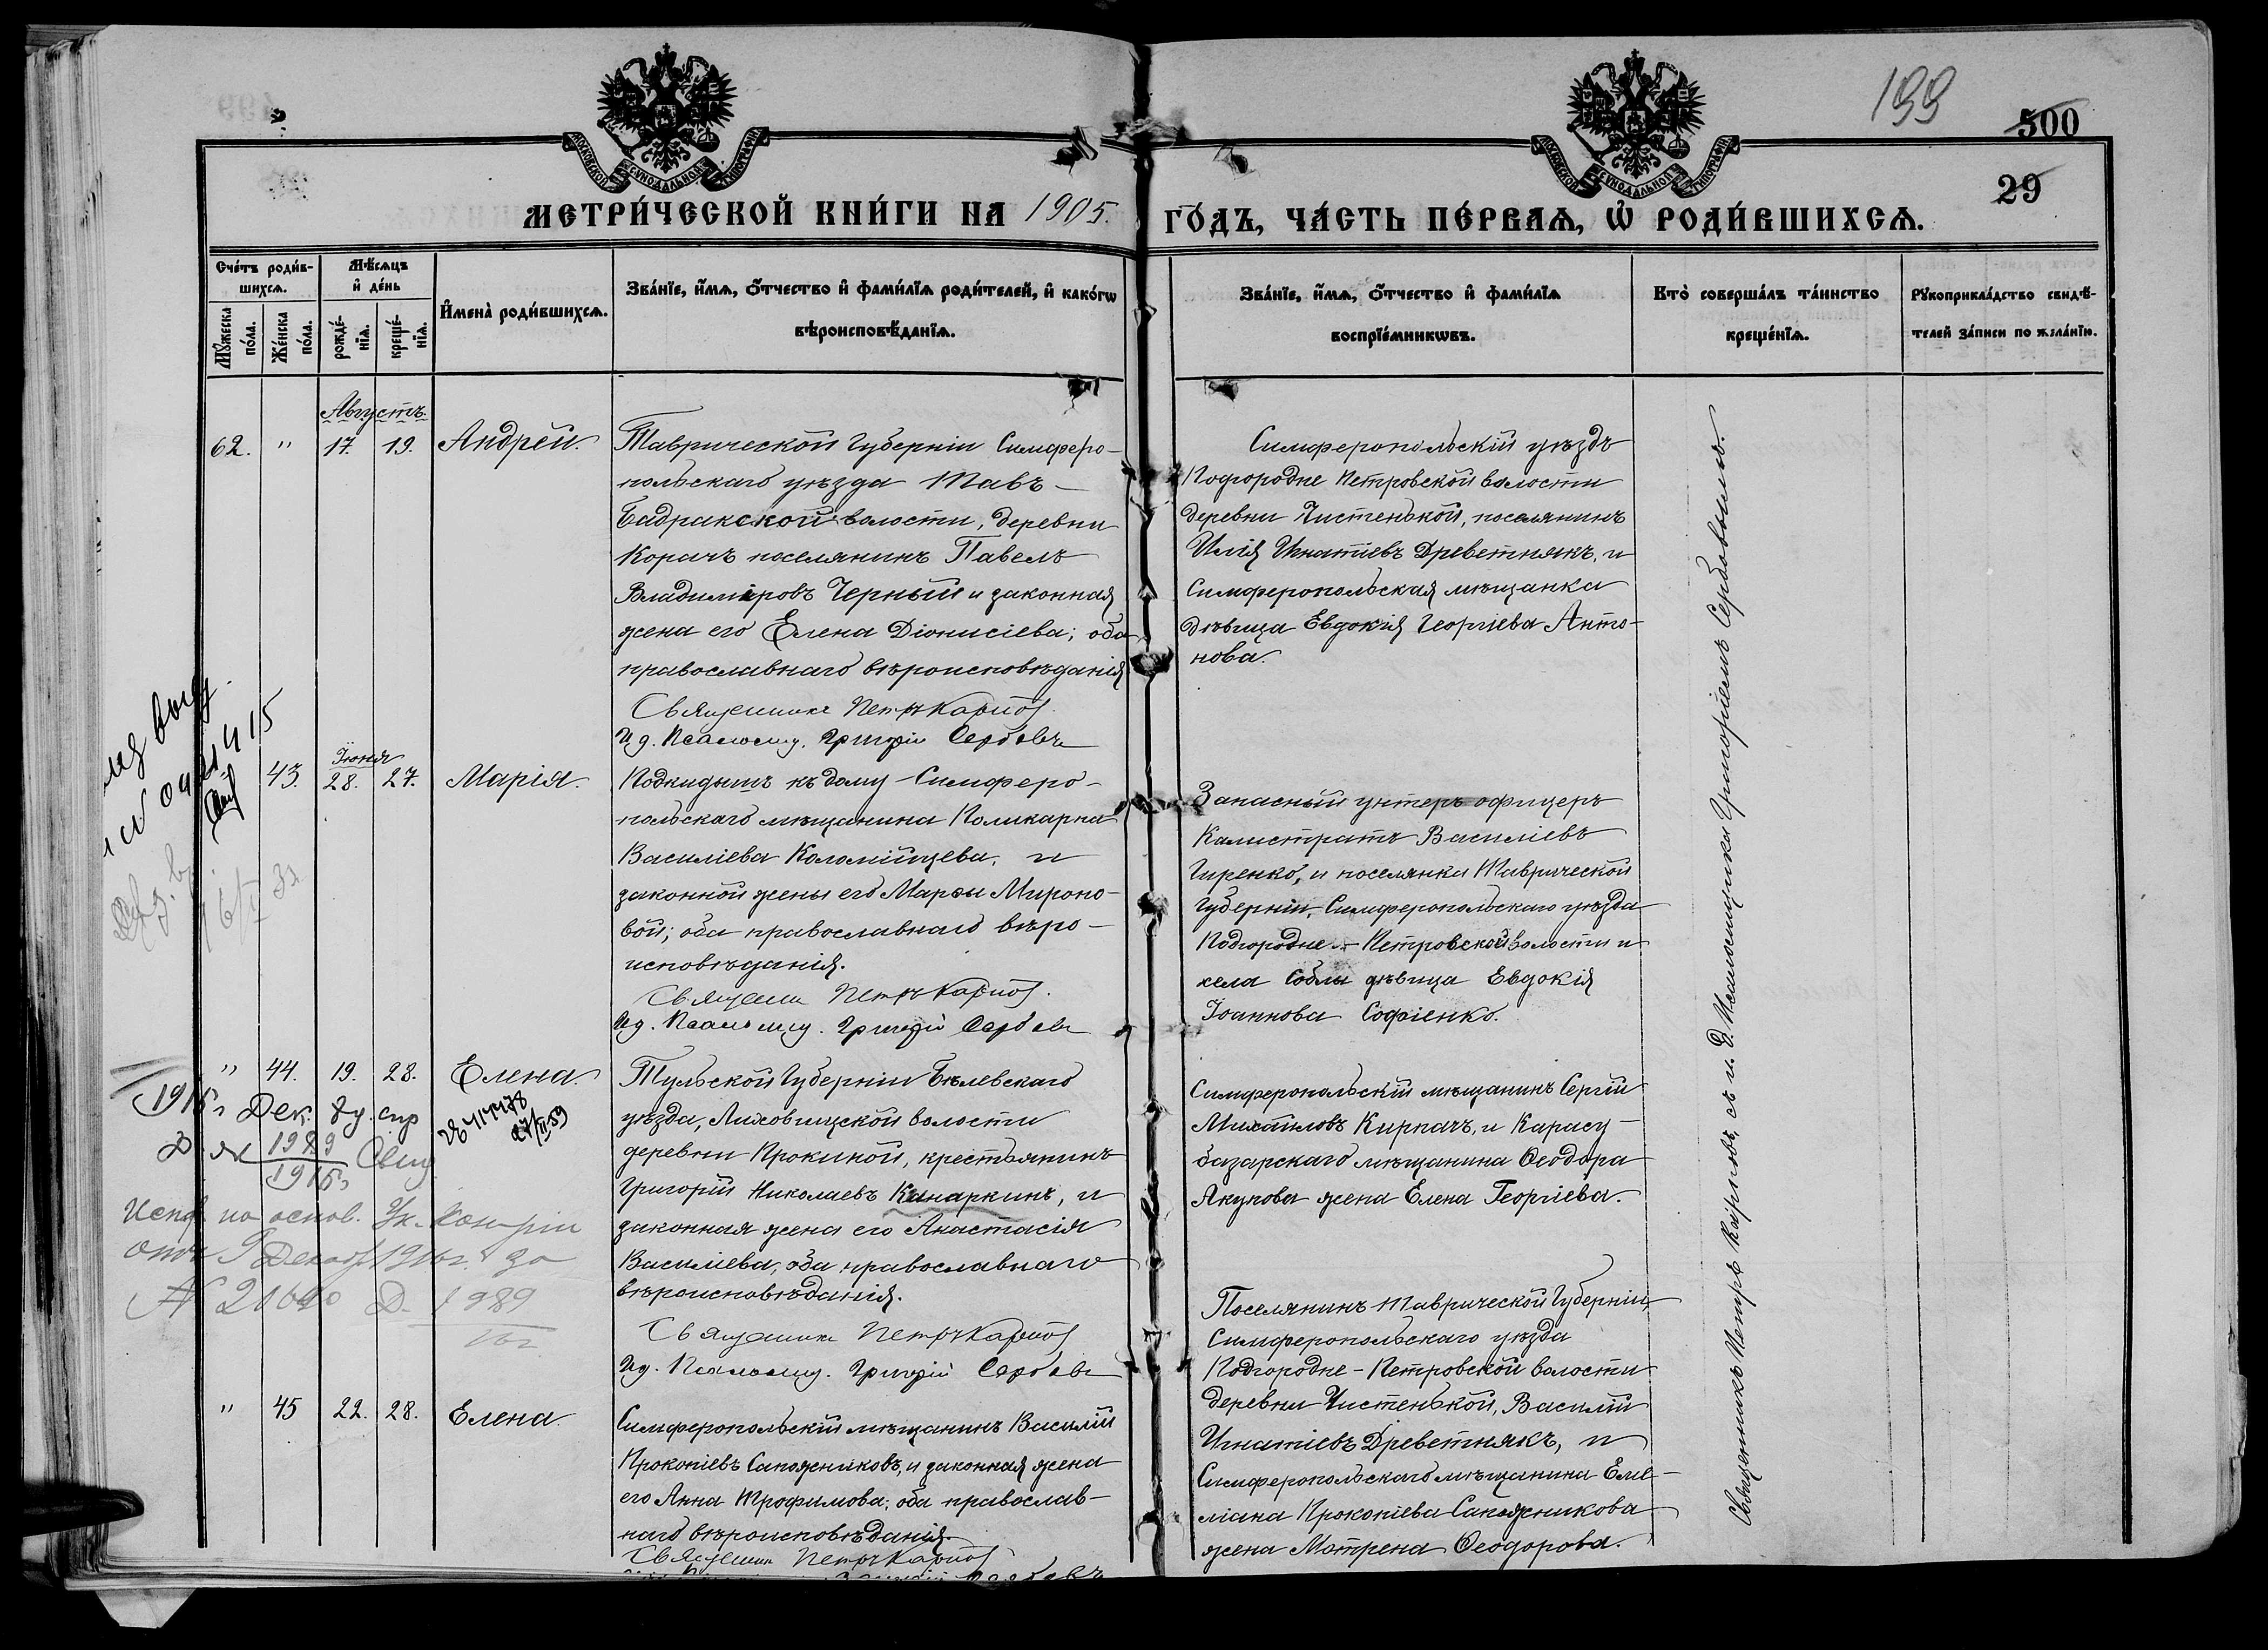 199
500
29
МОСКОВСКОЙ СѴНОДАЛЬНОЙ ТИПОГРАФІИ
МОСКОВСКОЙ СѴНОДАЛЬНОЙ ТИПОГРАФІИ
МЕТРИ́ЧЕСКОЙ КНИ́ГИ НА 1905. ГО́ДЪ, ЧА́СТЬ ПЕ́РВАѦ, Ѡ҆ РОДИ́ВШИХСѦ.
Сче́тъ роди́в-
шихсѧ.
Мꙋ́жеска
по́ла.
Же́нска
по́ла.
Мѣ́сѧцъ
и҆ де́нь
рожде́-
нїѧ.
креще́-
нїѧ.
И҆мена̀ роди́вшихсѧ.
Зва́нїе, и҆́мѧ, ѻ҆́тчество и҆ фами́лїѧ роди́телей, и҆ како́гѡ
вѣроисповѣ́данїѧ.
Зва́нїе, и҆́мѧ, ѻ҆́тчество и҆ фами́лїѧ
воспрїе́мникѡвъ.
Кто̀ соверша́лъ та́инство
креще́нїѧ.
Рꙋкоприкла́дство свидѣ́-
телей за́писи по жела́нїю.
Августъ.
62. " 17. 19. Андрей.
Таврической Губерніи Симферо-
польскаго уѣзда Тавъ-
Бадракской волости, деревни
Корачъ поселянинъ Павелъ
Владиміровъ Черный и законная
жена его Елена Діонисіева; оба
православнаго вѣроисповѣданія
Священникъ Петръ Карпов
И. д. Псаломщ. Григорій Сербовъ
Симферопольскій уѣздъ
Подгородне Петровской волости
деревни Чистенькой, поселянинъ
Илія Игнатіевъ Древетнякъ, и
Симферопольская мѣщанка
дѣвица Евдокія Георгіева Анто-
нова.
Іюня
43. 28. 27. Марія.
Подкидышъ къ дому Симферо-
польскаго мѣщанина Поликарпа
Василіева Коломійцева, и
законной жены его Марѳы Мироно-
вой; оба православнаго вѣро-
исповѣданія.
Священн Петръ Карпов.
И. д. Псаломщ. Григорій Сербовъ
Запасный унтеръ офицеръ
Калистратъ Василіевъ
Гиренко, и поселянка Таврической
Губерніи, Симферопольскаго уѣзда
Подгородне - Петровской волости и
села Соблы дѣвица Евдокія
Іоаннова Софіенко.
" 44. 19. 28. Елена.
Тульской Губерніи Бѣлевскаго
уѣзда, Лиховищской волости
деревни Прокиной, крестьянинъ
Григорій Николаевъ Канаркинъ, и
законная жена его Анастасія
Василіева, оба православнаго
вѣроисповѣданія.
Священникъ Петръ Карпов
И. д. Псаломщ. Григорій Сербовъ
Симферопольскій мѣщанинъ Сергій
Михаиловъ Кирпачъ, и Карасу-
базарскаго мѣщанина Ѳеодора
Якунова жена Елена Георгіева.
1989
Д. 1989
" 45 22. 28. Елена
Симферопольскій мѣщанинъ Василій
Прокопіевъ Сапожниковъ, и законная жена
его Анна Трофимова; оба православ-
наго вѣроисповѣданія.
Священник Петръ Карпов
Поселянинъ Таврической Губерніи,
Симферопольскаго уѣзда
Подгородне - Петровской волости
деревни Чистенькой, Василій
Игнатіевъ Древетнякъ, и
Симферопольскаго мѣщанина Еми-
ліана Прокопіева Сапожникова
жена Матрена Ѳеодорова.
Священникъ Петръ Карповъ, съ и. д. Псаломщика Григоріемъ Сербовымъ.